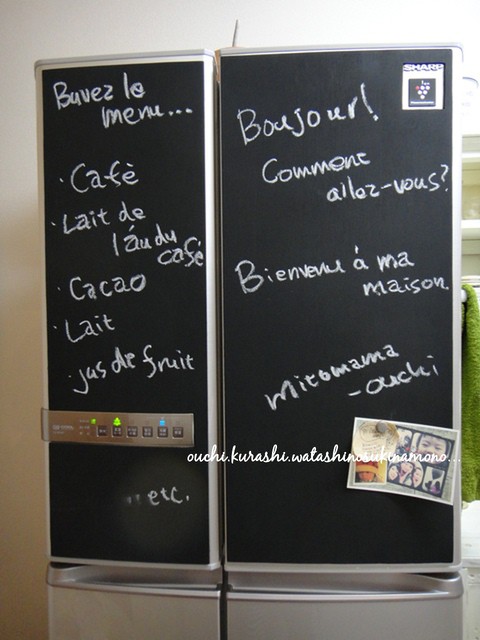 Buvez le
menu...
・Cafè
・Lait de
l'áu du
cafè
・Cacao
・Lait
・jus de fruit
...etc.
SHARP
Boujour!
Comment
allez-vous?
Bienvenu á ma
maison
mitomama
-ouchi
ouchi.kurashi.watashinosukinamono...